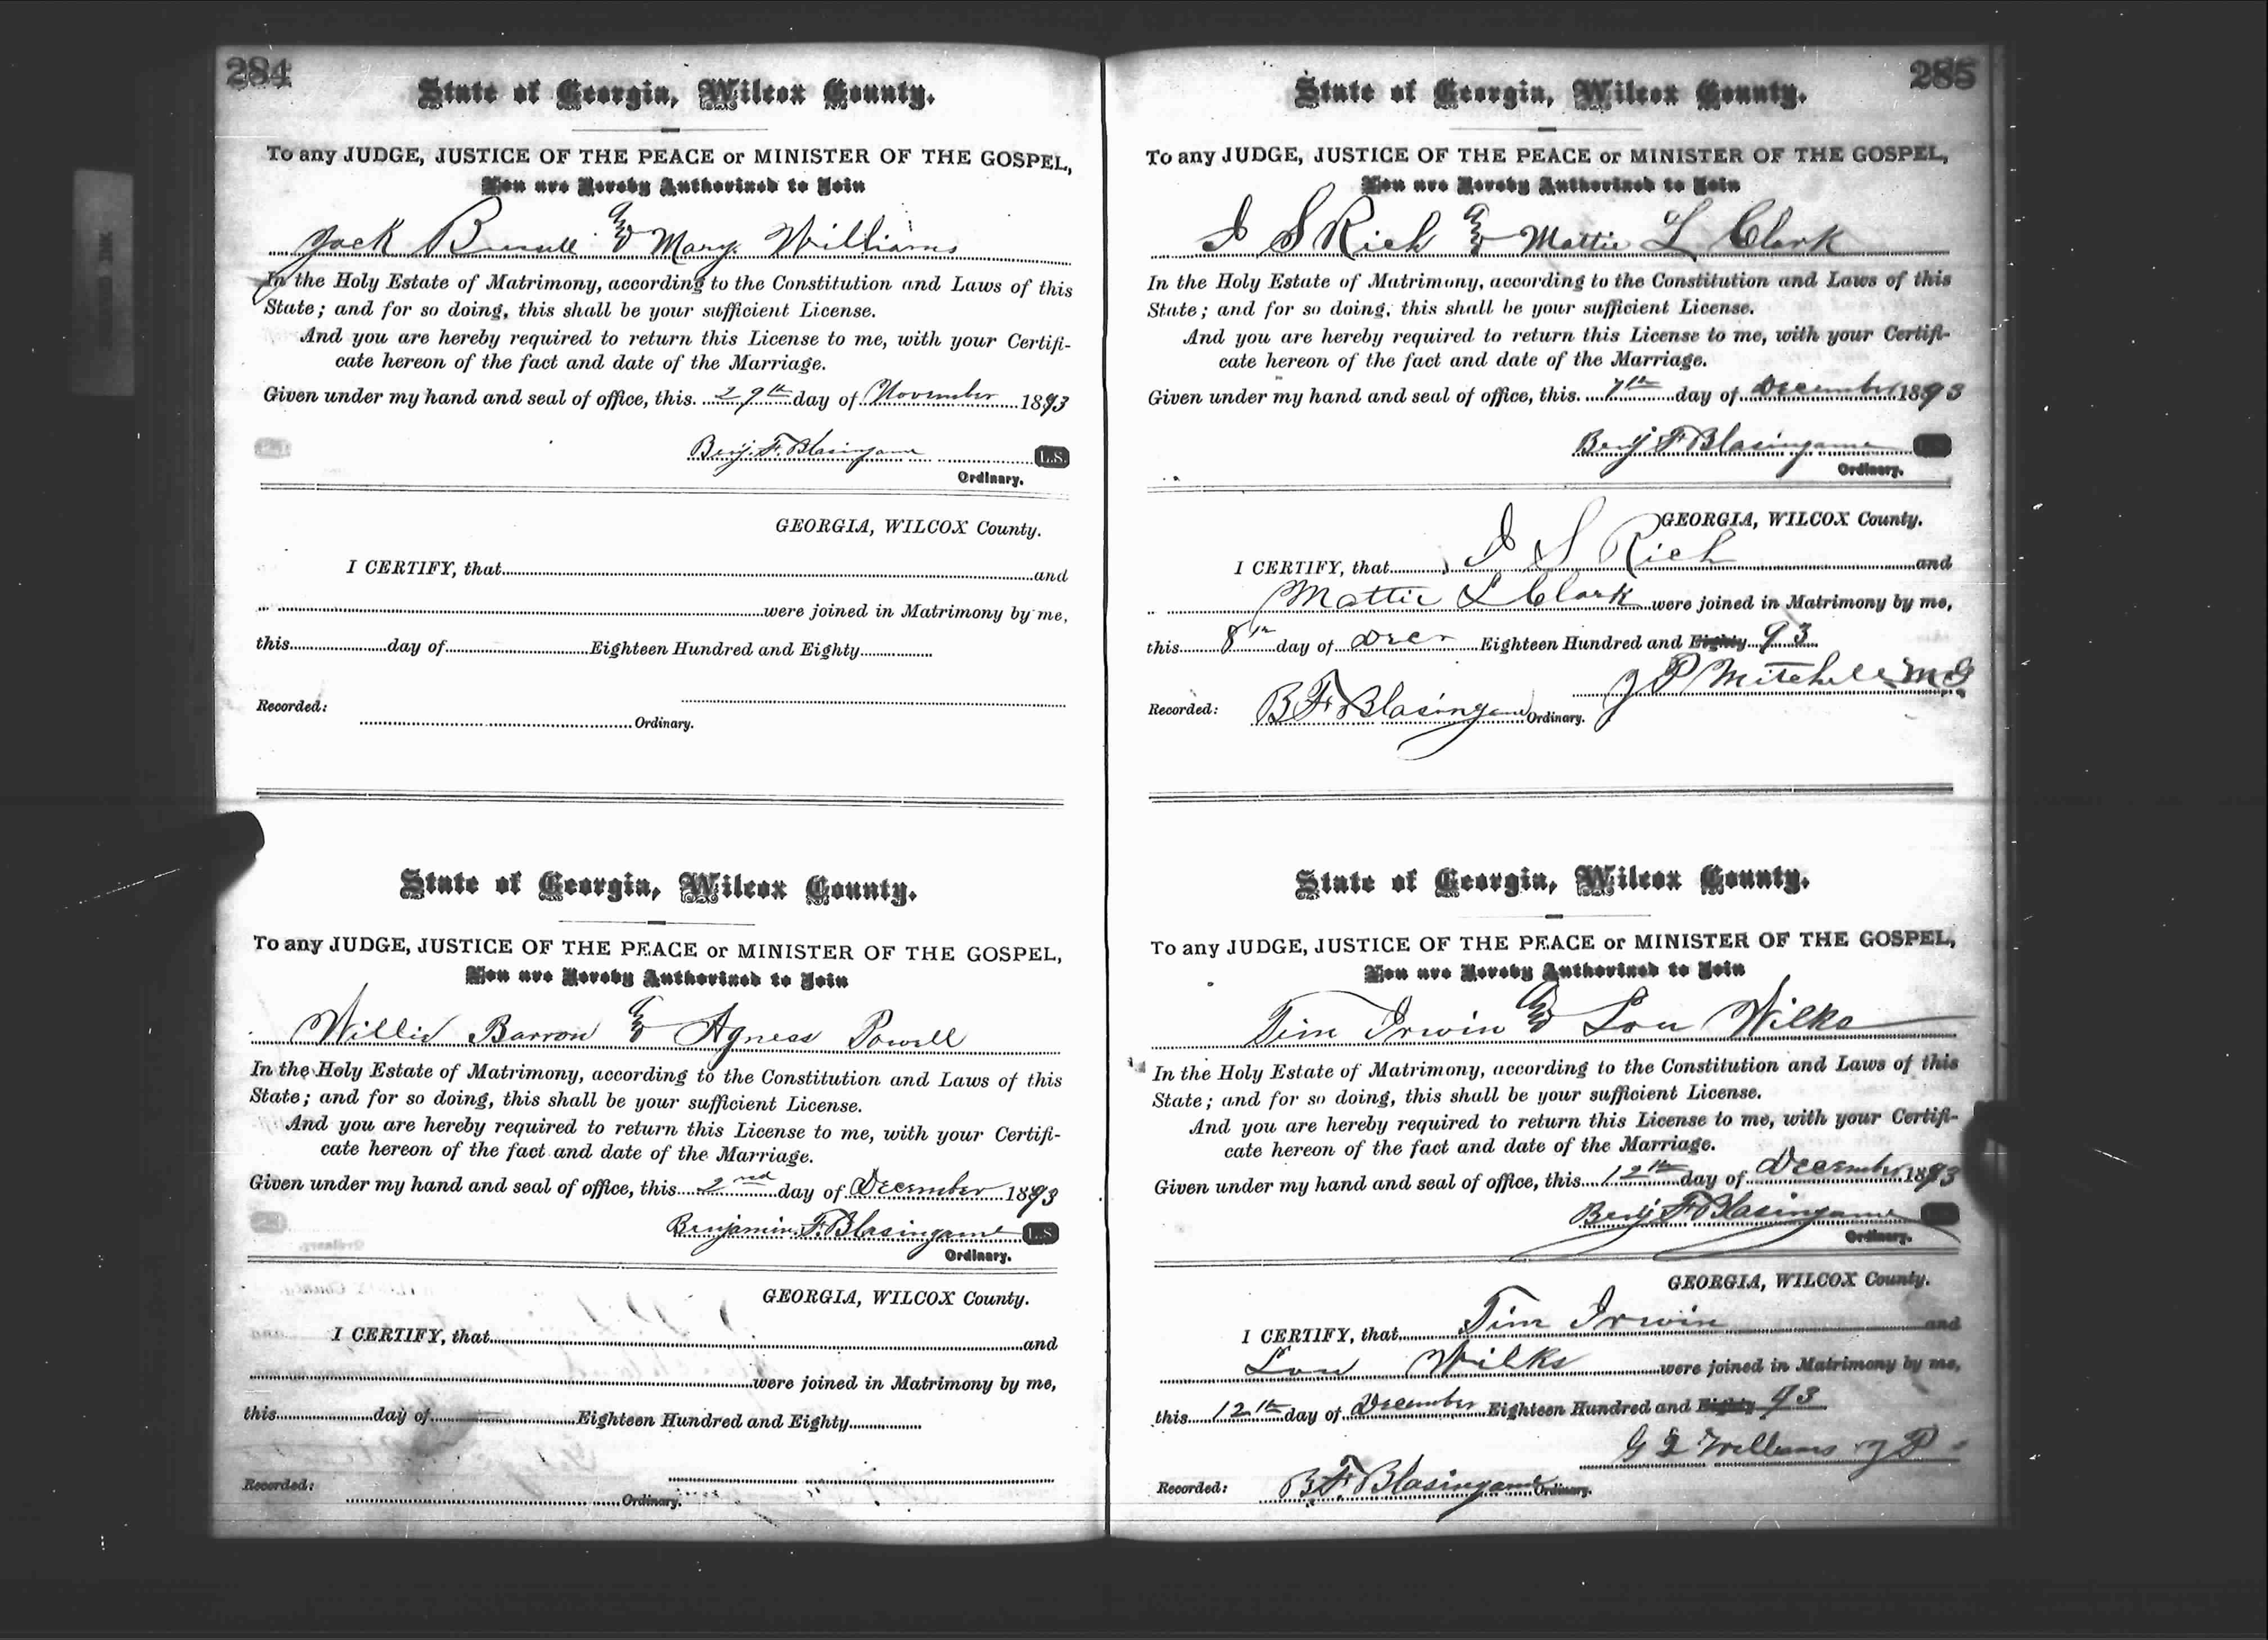 284
State of Georgia, Wilcox County.
To any JUDGE, JUSTICE OF THE PEACE or MINISTER OF THE GOSPEL,
You are Hereby Authorized to Join
Jack & Mary Williams
In the Holy Estate of Matrimony, according to the Constitution and Laws of this
State; and for so doing, this shall be your sufficient License.
And you are hereby required to return this License to me, with your Certifi-
cate hereon of the fact and date of the Marriage.
Given under my hand and seal of office, this 29th day of November 1893
Benj. F. Blasingame L.S.
Ordinary.
GEORGIA, WILCOX County.
I CERTIFY, that and
were joined in Matrimony by me,
this day of Eighteen Hundred and Eighty
Recorded:
Ordinary.
State of Georgia, Wilcox County.
To any JUDGE, JUSTICE OF THE PEACE or MINISTER OF THE GOSPEL,
You are Hereby Authorized to Join
Willis Barron & Agness Powell
In the Holy Estate of Matrimony, according to the Constitution and Laws of this
State; and for so doing, this shall be your sufficient License.
And you are hereby required to return this License to me, with your Certifi-
cate hereon of the fact and date of the Marriage.
Given under my hand and seal of office, this 2nd day of December 1893
Benjamin F. Blasingame L.S.
Ordinary.
GEORGIA, WILCOX County.
I CERTIFY, that and
were joined in Matrimony by me,
this day of Eighteen Hundred and Eighty
Recorded:
Ordinary.
285
State of Georgia, Wilcox County.
To any JUDGE, JUSTICE OF THE PEACE or MINISTER OF THE GOSPEL,
You are Hereby Authorized to Join
J S Rich & Mattie L Clark
In the Holy Estate of Matrimony, according to the Constitution and Laws of this
State; and for so doing, this shall be your sufficient License.
And you are hereby required to return this License to me, with your Certifi-
cate hereon of the fact and date of the Marriage.
Given under my hand and seal of office, this 7th day of December 1893
Benj F Blasingame
Ordinary.
GEORGIA, WILCOX County.
I CERTIFY, that J S Rich and
Mattie L Clark were joined in Matrimony by me,
this 8th day of Decr Eighteen Hundred and Eighty 93
J P Mitchell M G
Recorded: B F Blasingame Ordinary.
State of Georgia, Wilcox County.
To any JUDGE, JUSTICE OF THE PEACE or MINISTER OF THE GOSPEL,
You are Hereby Authorized to Join
Tim Irwin & Lou Wilks
In the Holy Estate of Matrimony, according to the Constitution and Laws of this
State; and for so doing, this shall be your sufficient License.
And you are hereby required to return this License to me, with your Certifi-
cate hereon of the fact and date of the Marriage.
Given under my hand and seal of office, this 12th day of December 1893
Benj F Blasingame
Ordinary.
GEORGIA, WILCOX County.
I CERTIFY, that Tim Irwin and
Lou Wilks were joined in Matrimony by me,
this 12th day of December Eighteen Hundred and Eighty 93
Williams J P
Recorded: B. F. Blasingame Ordinary.